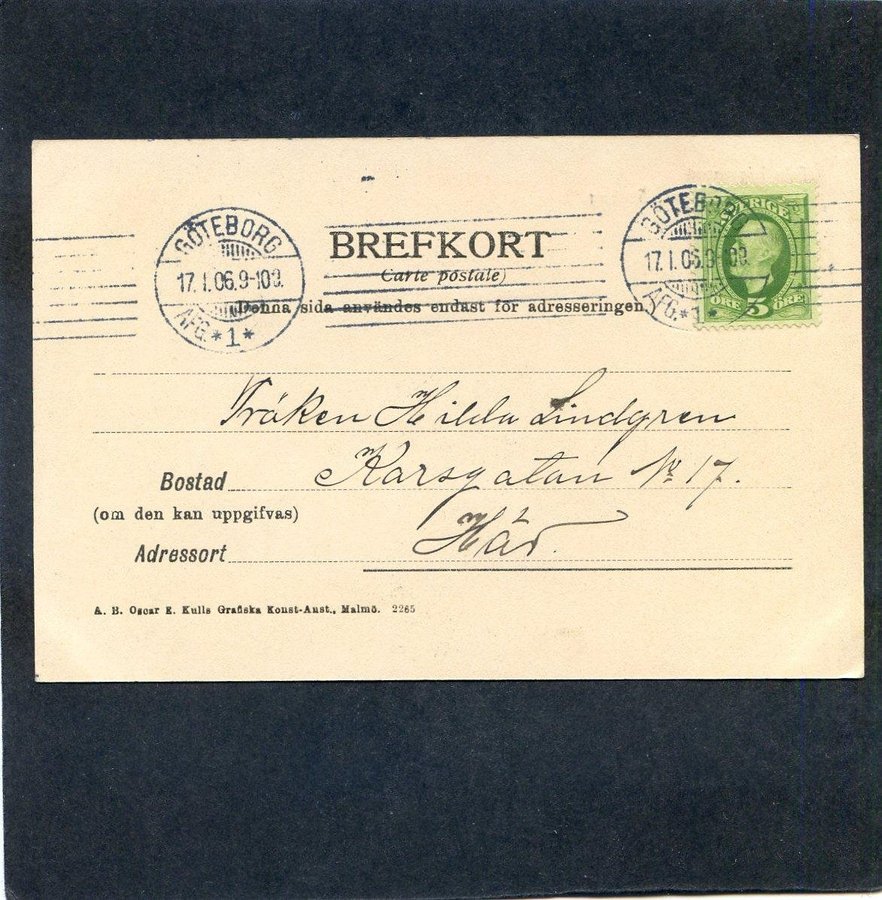 GÖTEBORG
17. 1. 06. 9-10 F.
AFG. *1*
BREFKORT
(Carte postale)
Denna sida användes endast för adresseringen.
GÖTEBORG
17. 1. 06. 9-10
AFG. *1*
SVERIGE
ÖRE 5 ÖRE
Fröken Hilda Lindgren
Bostad Karsgatan No 17.
(om den kan uppgifvas)
Adressort Här.
A. B. Oscar E. Kulls Grafiska Konst-Anst., Malmö. 2265